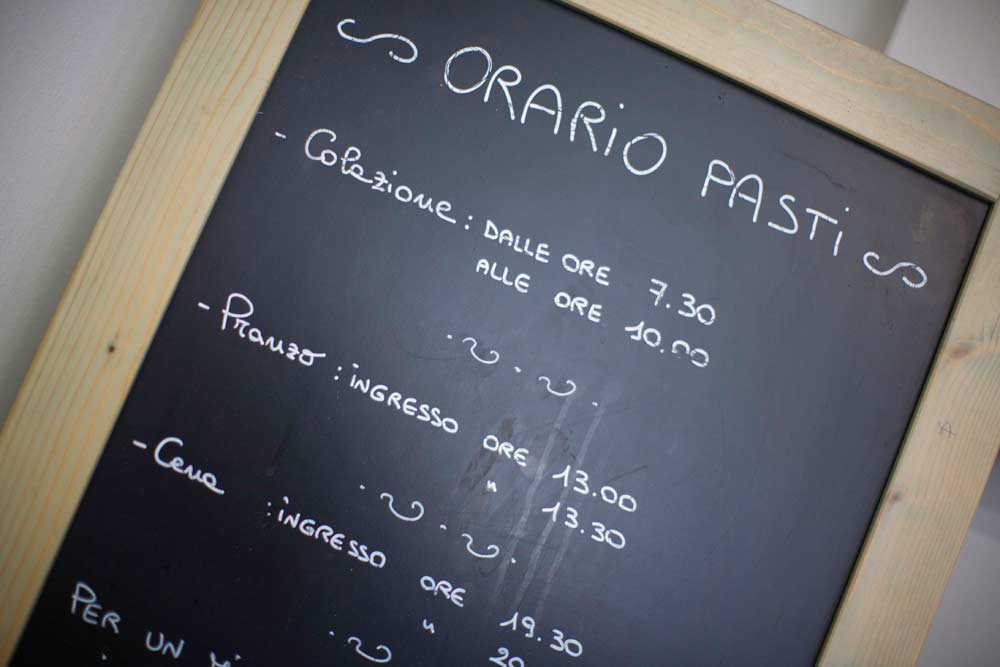 ORARIO PASTI
- Colazione : DALLE ORE 7.30
ALLE ORE 10.00
- Pranzo : INGRESSO ORE 13.00
" 13.30
- Cena : INGRESSO ORE 19.30
" 20
PER UN